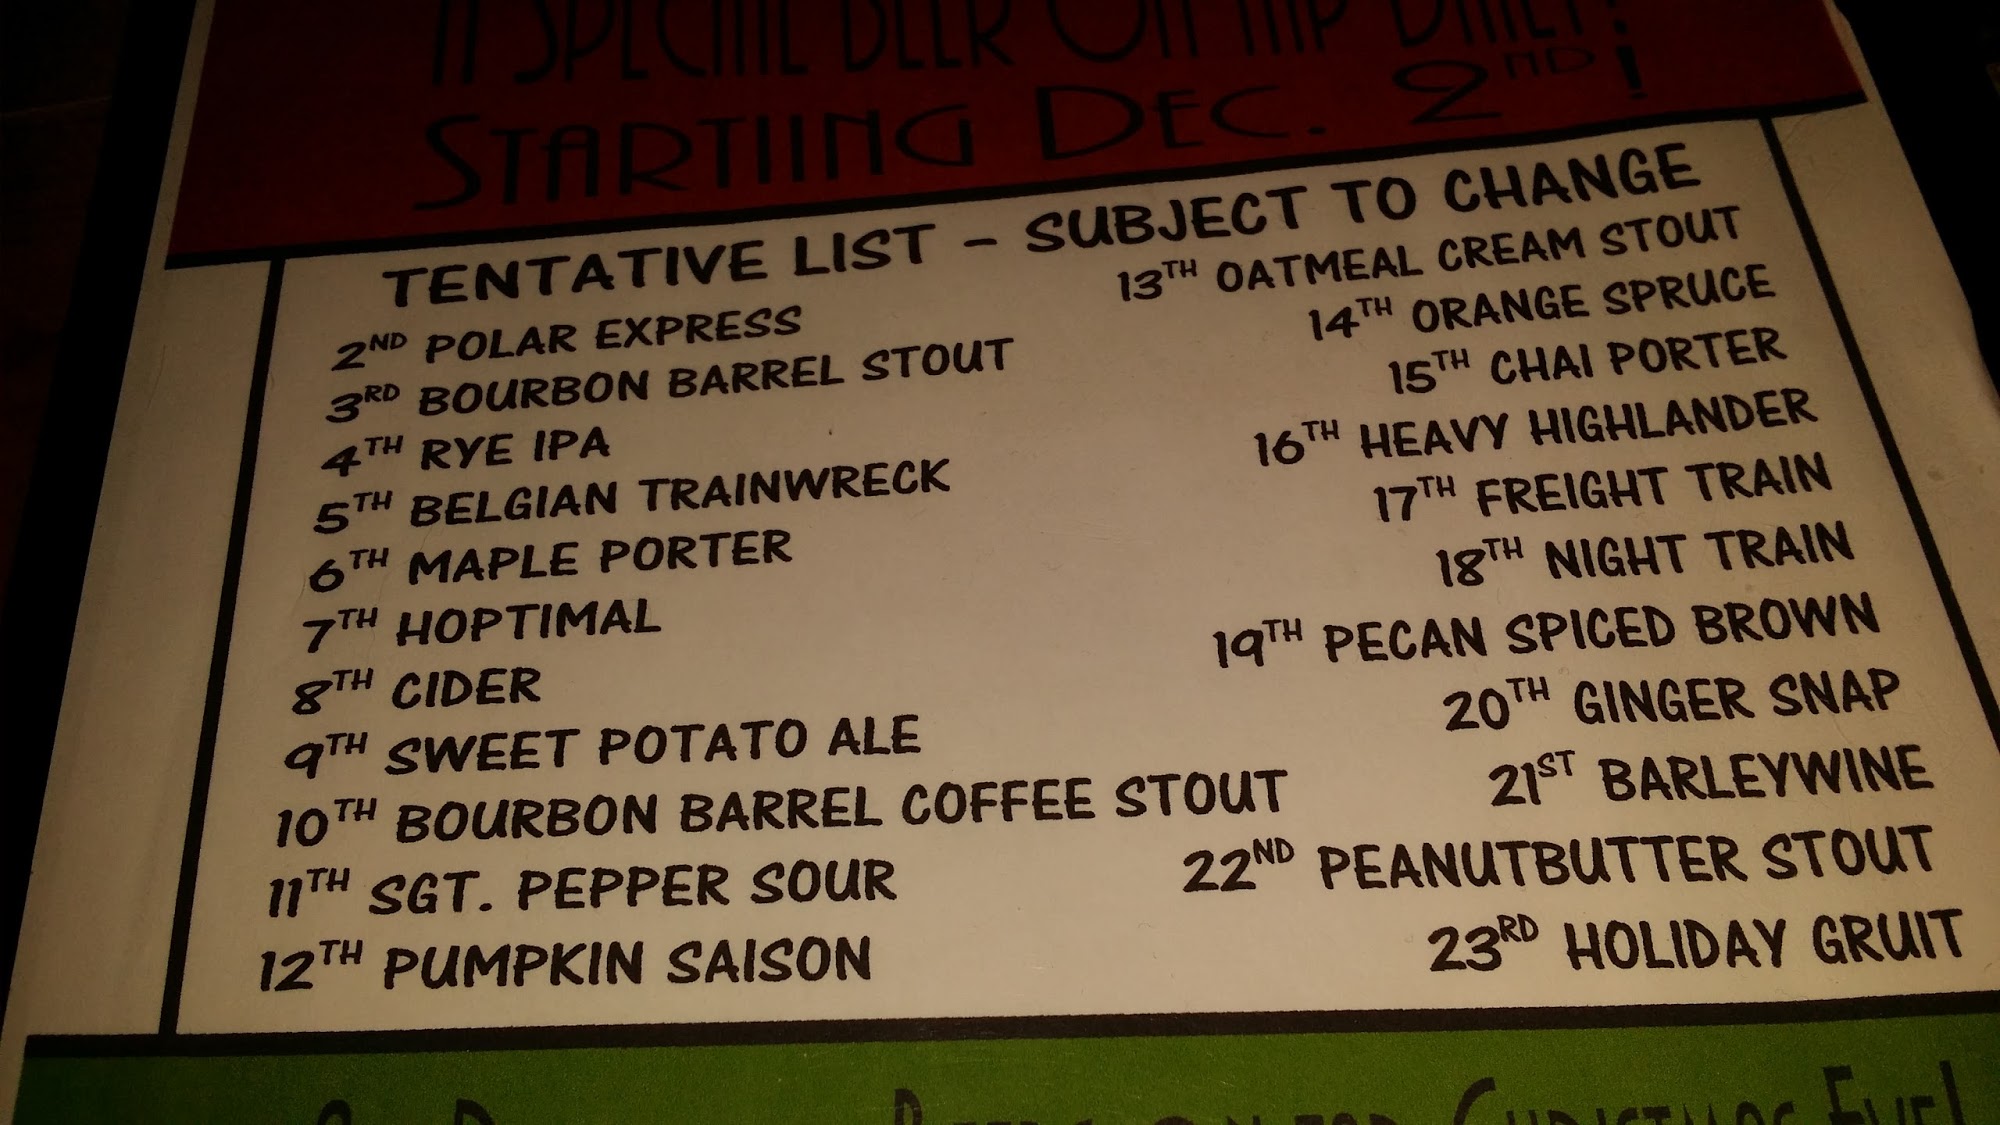 A SPECIAL BEER ON TAP DAILY!
STARTIING DEC. 2ND!
TENTATIVE LIST – SUBJECT TO CHANGE
2ND POLAR EXPRESS
3RD BOURBON BARREL STOUT
4TH RYE IPA
5TH BELGIAN TRAINWRECK
6TH MAPLE PORTER
7TH HOPTIMAL
8TH CIDER
9TH SWEET POTATO ALE
10TH BOURBON BARREL COFFEE STOUT
11TH SGT. PEPPER SOUR
12TH PUMPKIN SAISON
13TH OATMEAL CREAM STOUT
14TH ORANGE SPRUCE
15TH CHAI PORTER
16TH HEAVY HIGHLANDER
17TH FREIGHT TRAIN
18TH NIGHT TRAIN
19TH PECAN SPICED BROWN
20TH GINGER SNAP
21ST BARLEYWINE
22ND PEANUTBUTTER STOUT
23RD HOLIDAY GRUIT
FOR CHRISTMAS EVE!